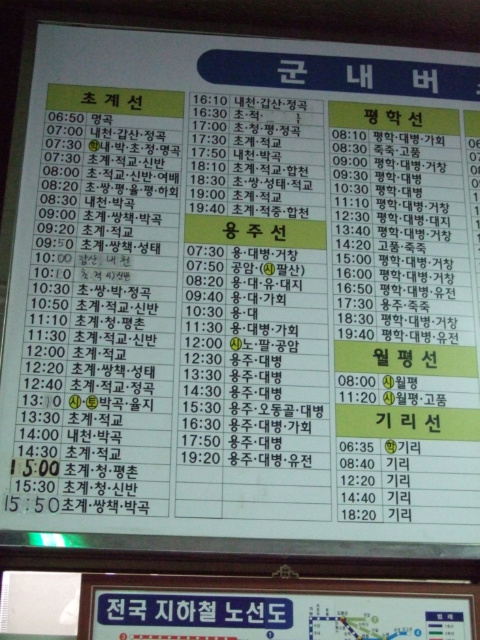 군 내 버
초계선
06:50 명곡
07:00 내천·갑산·정곡
07:30 학내·박·초·정·명곡
07:30 초계·적교·신반
08:00 초·적교·신반·여배
08:20 초·쌍·평·율·평·하회
08:30 내천·박곡
09:00 초계·쌍책·박곡
09:20 초계·적교
09:50 초계·쌍책·성태
10:00 갑산 내천
초 적 신반
10:30 초·쌍·박·정곡
10:50 초계·적교·신반
11:10 초계·청·평촌
11:30 초계·적교·신반
12:00 초계·적교
12:20 초계·쌍책·성태
12:40 초계·적교·정곡
시·토 박곡·율지
13:30 초계·적교
14:00 내천·박곡
14:30 초계·적교
15:00 초계·청·평촌
15:30 초계·청·신반
15:50 초계·쌍책·박곡
16:10 내천·갑산·정곡
16:30 초·적·
17:00 초·청·평·정곡
17:30 초계·적교
17:50 내천·박곡
18:10 초계·적교·합천
18:30 초·쌍·성태·적교
19:00 초계·적교
19:40 초계·적중·합천
용주선
07:30 용·대병·거창
07:50 공암·(시팔산)
08:20 용·대·유·대지
09:40 용·대·가회
10:30 용·대
11:30 용·대병·가회
12:00 시노·팔·공암
12:30 용주·대병
13:30 용주·대병
14:30 용주·대병
15:30 용주·오동골·대병
16:30 용주·대병·가회
17:50 용주·대병
19:20 용주·대병·유전
평학선
08:10 평학·대병·가회
08:30 죽죽·고품
09:00 평학·대병·거창
09:30 평학·대병
10:30 평학·대병
11:10 평학·대병·거창
12:30 평학·대병·대지
13:40 평학·대병·거창
14:20 고품·죽죽
15:00 평학·대병·거창
16:00 평학·대병·거창
16:50 평학·대병·유전
17:30 용주·죽죽
18:30 평학·대병·거창
19:40 평학·대병·유전
월평선
08:00 시월평
11:20 시월평·고품
기리선
06:35 학기리
08:40 기리
12:20 기리
14:40 기리
18:20 기리
전국 지하철 노선도
범 례